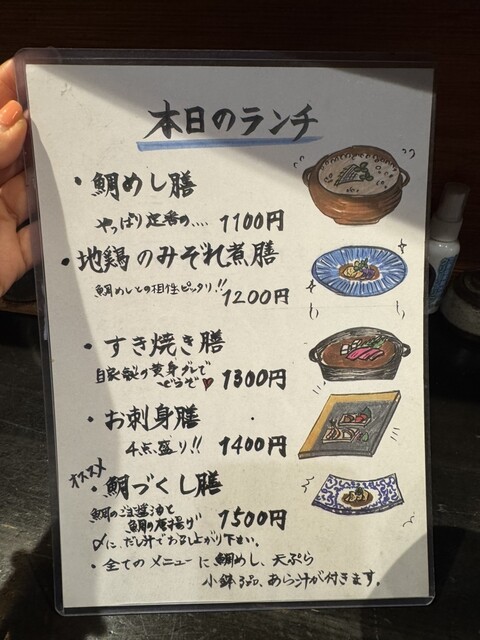 本日のランチ
・鯛めし膳
やっぱり定番の.... 1100円
・地鶏のみぞれ煮膳
鯛めしとの相性ピッタリ!! 1200円
・すき焼き膳
自家製の黄身ダレで
どうぞ♥ 1300円
・お刺身膳
4点盛り!! 1400円
オススメ
・鯛づくし膳
鯛の注醤油と
鯛の唐揚げ 1500円
〆に、だし汁でお召し上がり下さい。
・全てのメニューに鯛めし、天ぷら
小鉢3品、あら汁が付きます。